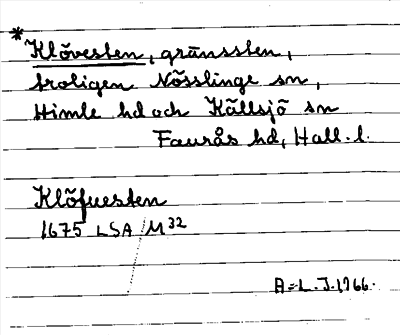 * Klövesten, gränssten,
troligen Nösslinge sn,
Himle hd och Källsjö sn
Faurås hd, Hall. l.
Klöfuesten
1675 LSA M 32
A-L. J. 1966.